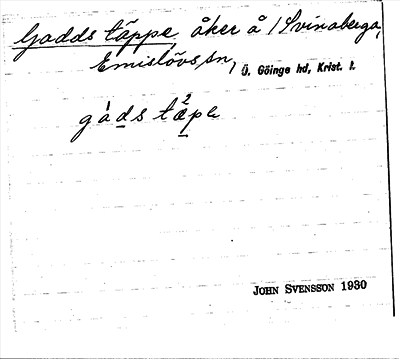 Gadds täppe, åker å 1 Svinaberga,
Emislövs sn, Ö. Göinge hd, Krist. l.
gàds tæ²pe
JOHN SVENSSON 1930